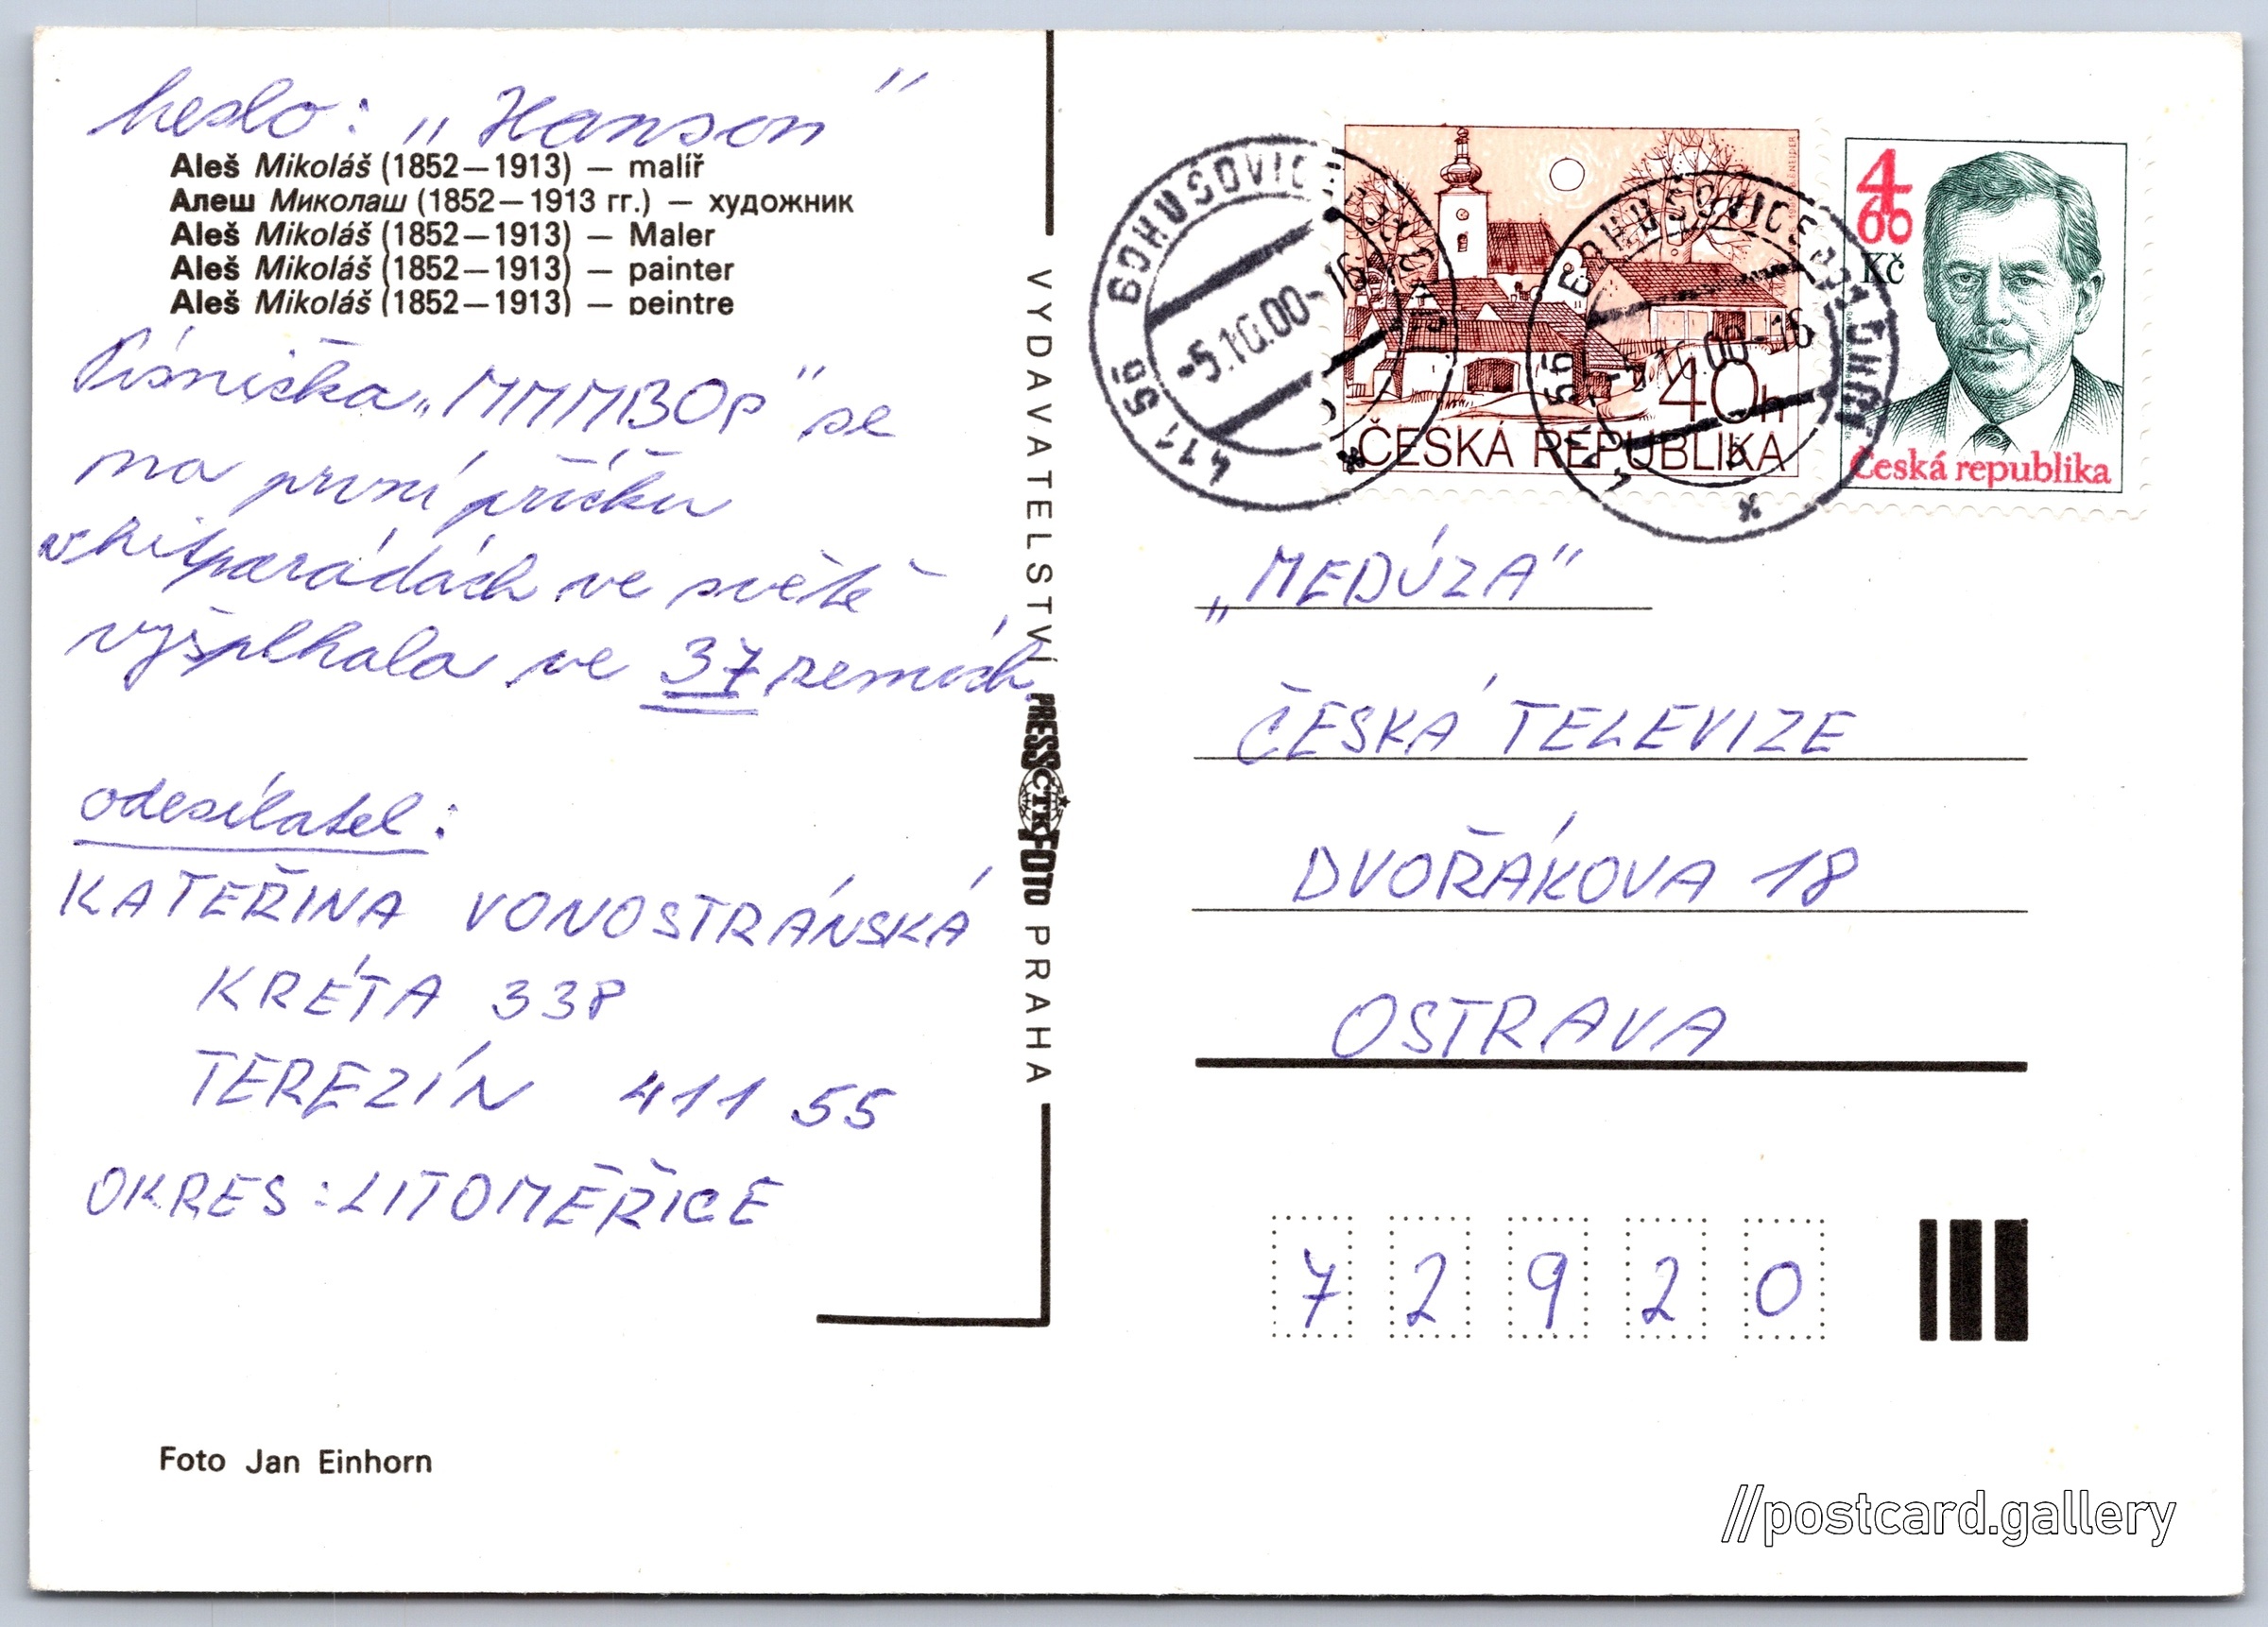 heslo: „Hanson"
Aleš Mikoláš (1852—1913) — malíř
Алеш Миколаш (1852—1913 гг.) — художник
Aleš Mikoláš (1852—1913) — Maler
Aleš Mikoláš (1852—1913) — painter
Aleš Mikoláš (1852—1913) — peintre
Písnička „MMMBOP" se
na první příčku
v hitparádách ve světě
vyšplhala ve 37 zemích
odesílatel:
KATEŘINA VONOSTRÁNSKÁ
KRÉTA 338
TEREZÍN 411 55
OKRES: LITOMĚŘICE
Foto Jan Einhorn
VYDAVATELSTVÍ PRESSFOTO PRAHA
ČTK
411 56 BOHUŠOVICE
-5.10.00-16
40h
ČESKÁ REPUBLIKA
411 56 BOHUŠOVICE
-5.10.00-16
4 60
Kč
Česká republika
„MEDÚZA"
ČESKÁ TELEVIZE
DVOŘÁKOVA 18
OSTRAVA
72920
//postcard.gallery